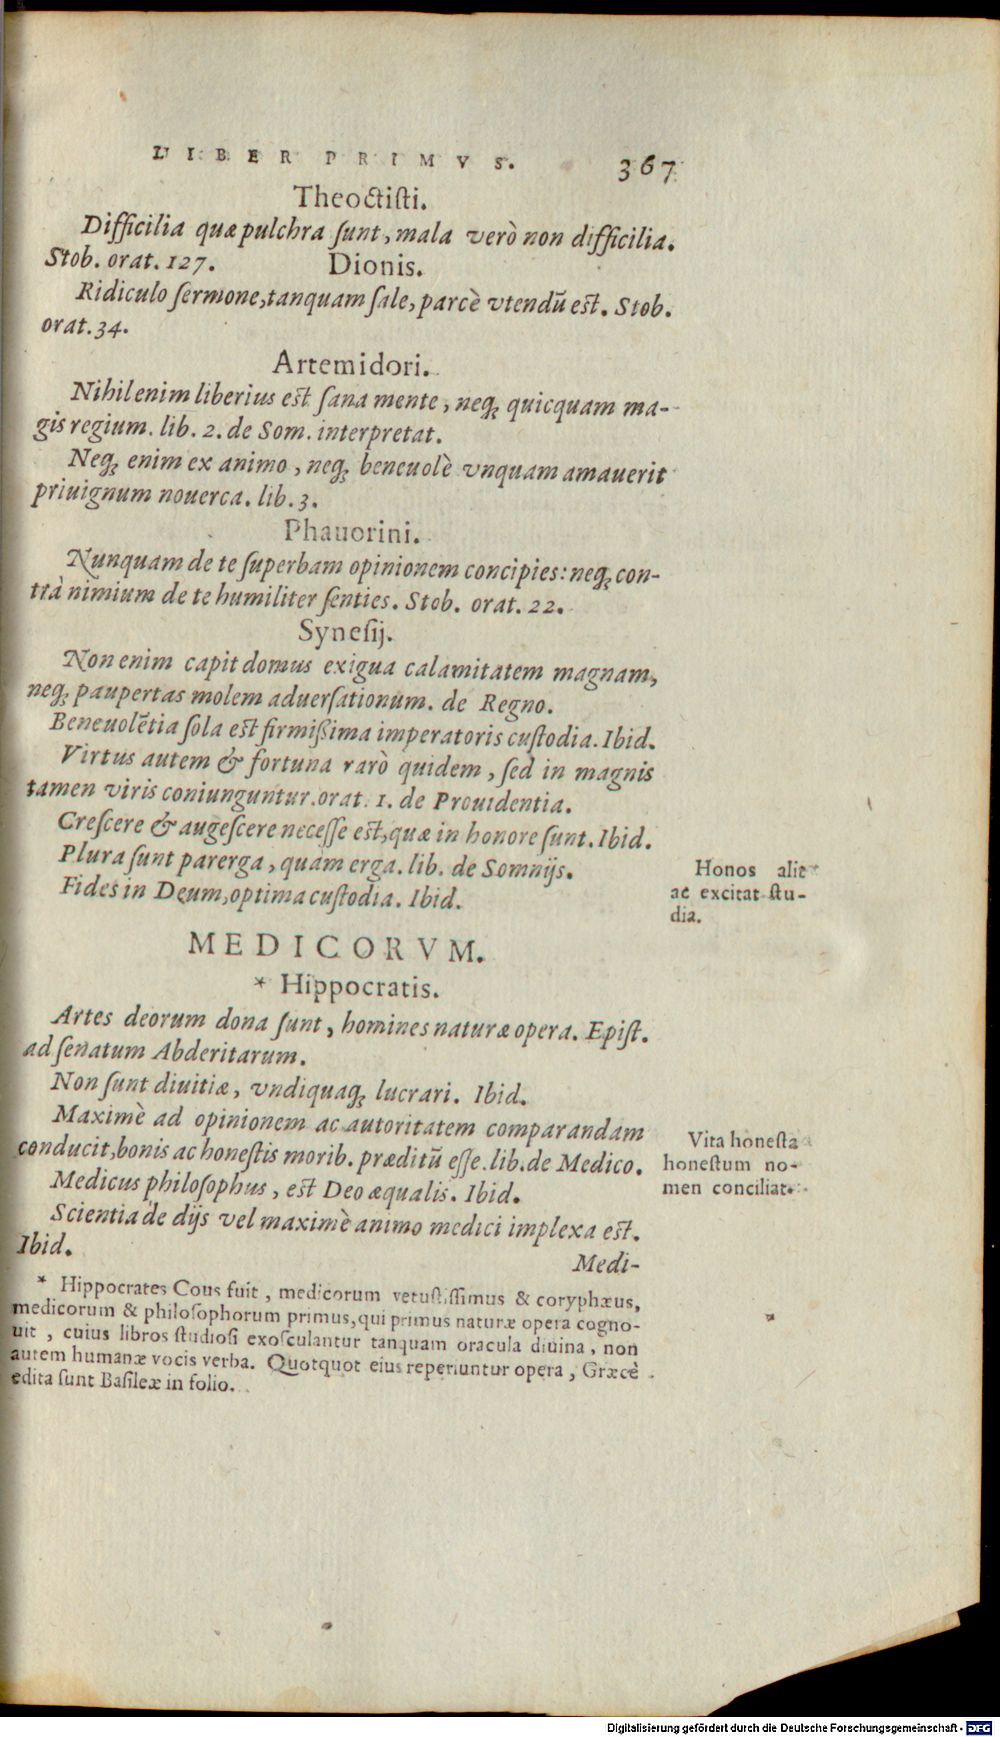 LIBER PRIMVS. 367
Theoctisti.
Difficilia quæ pulchra ſunt, mala verò non difficilia.
Stob. orat. 127. Dionis.
Ridiculo ſermone, tanquam ſale, parcè vtendũ est. Stob.
orat. 34.
Artemidori.
Nihil enim liberius est ſana mente, neq; quicquam ma-
gis regium. lib. 2. de Som. interpretat.
Neq; enim ex animo, neq; beneuolè vnquam amauerit
priuignum nouerca. lib. 3.
Phauorini.
Nunquam de te ſuperbam opinionem concipies: neq; con-
trà nimium de te humiliter ſenties. Stob. orat. 22.
Syneſij.
Non enim capit domus exigua calamitatem magnam,
neq; paupertas molem aduerſationum. de Regno.
Beneuolẽtia ſola est firmiſsima imperatoris cuſtodia. Ibid.
Virtus autem & fortuna rarò quidem, ſed in magnis
tamen viris coniunguntur. orat. 1. de Prouidentia.
Creſcere & augeſcere neceſſe est, quæ in honore ſunt. Ibid.
Plura ſunt parerga, quàm erga. lib. de Somnijs.
Fides in Deum, optima cuſtodia. Ibid.
Honos alit
ac excitat ſtu-
dia.
MEDICORVM.
* Hippocratis.
Artes deorum dona ſunt, homines naturæ opera. Epiſt.
ad ſenatum Abderitarum.
Non ſunt diuitiæ, vndiquaq; lucrari. Ibid.
Maximè ad opinionem ac autoritatem comparandam
conducit, bonis ac honeſtis morib. præditũ eſſe. lib. de Medico.
Medicus philoſophus, est Deo æqualis. Ibid.
Scientia de dijs vel maximè animo medici implexa est.
Ibid.
Vita honeſta
honeſtum no-
men conciliat.
Medi-
* Hippocrates Cous fuit, medicorum vetuſtiſſimus & coryphæus,
medicorum & philoſophorum primus, qui primus naturæ opera cogno-
uit, cuius libros ſtudioſi exoſculantur tanquam oracula diuina, non
autem humanæ vocis verba. Quotquot eius reperiuntur opera, Græcè
edita ſunt Baſileæ in folio.
Digitalisierung gefördert durch die Deutsche Forschungsgemeinschaft - DFG